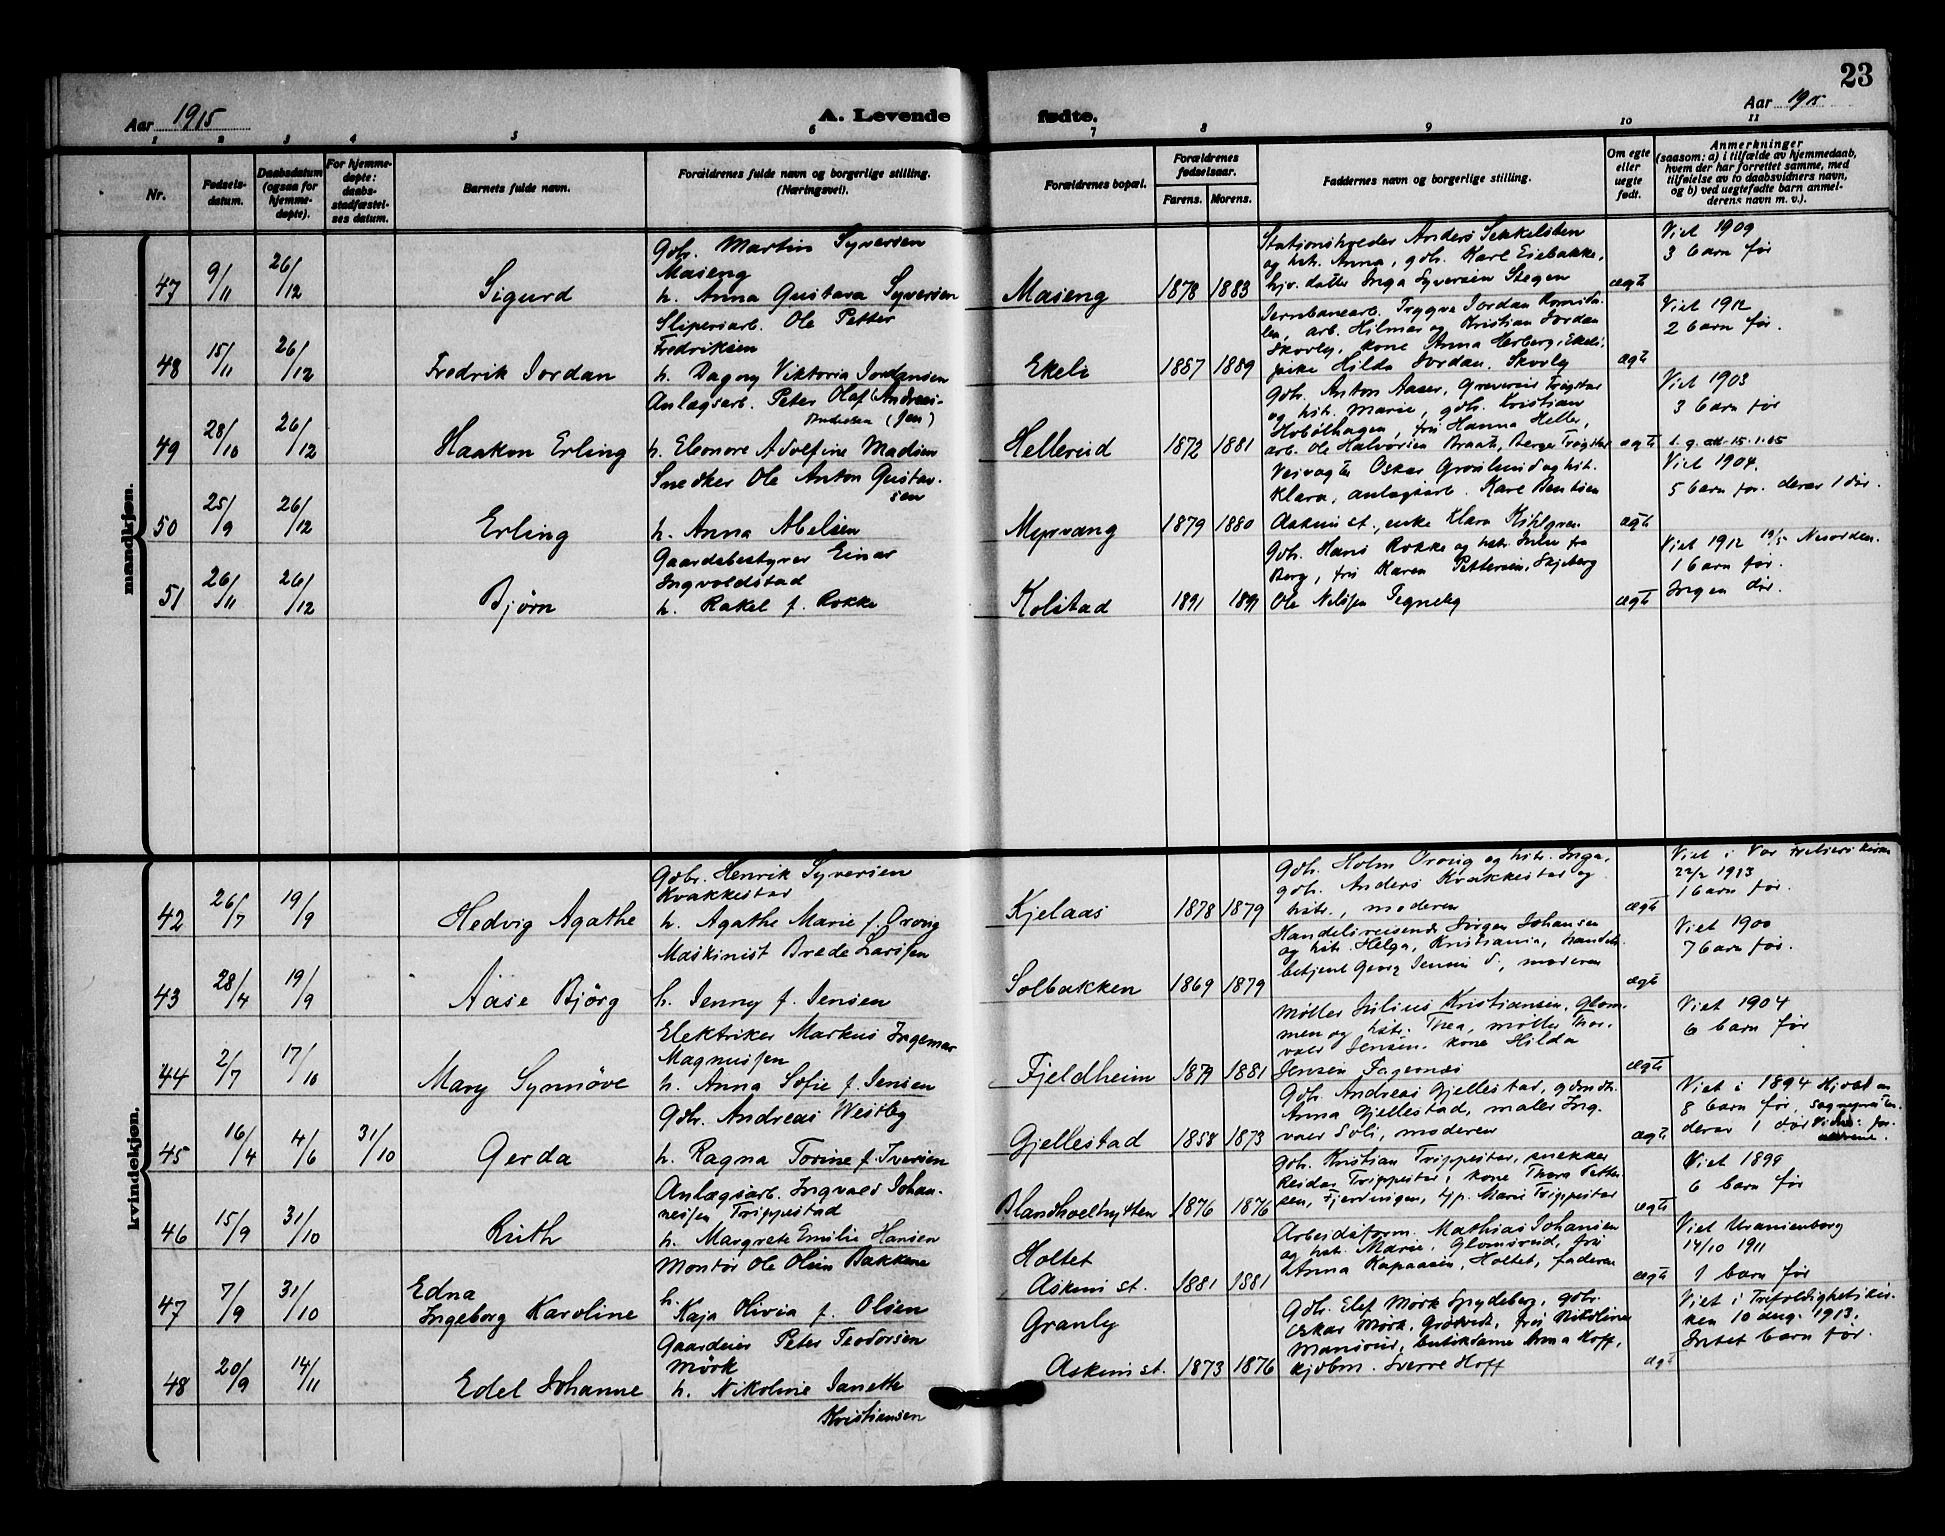 23
Aar 1915
A. Levende fødte.
Aar 1915
1 2 3 4 5 6 7 8 9 10 11
Nr.
Fødsels-
datum.
Daabsdatum
(ogsaa for
hjemme-
døpte).
For hjemme-
døpte:
daabs-
stadfæstel-
ses datum.
Barnets fulde navn.
Forældrenes fulde navn og borgerlige stilling.
(Næringsvei).
Forældrenes bopæl.
Forældrenes
fødselsaar.
Farens. Morens.
Faddernes navn og borgerlige stilling.
Om egte
eller
uegte
født.
Anmerkninger
(saasom: a) i tilfælde av hjemmedaab,
hvem der har forrettet samme, med
tilføielse av to daabsvidners navn,
og b) ved uegtefødte barn anmel-
derens navn m. v.).
mandkjøn.
47 9/11 26/12 Sigurd
Gdb. Martin Syversen
Maseng
h. Anna Gustava Syversen
Maseng 1878 1883
Stationsholder Anders Sekkelsten
og hst. Anna, gdb. Karl Eiebakke,
hjv. datter Inga Syversen Stegen
ægte
Viet 1909
3 barn før
48 15/11 26/12 Fredrik Jordan
Sliperiarb. Ole Petter
Fredriksen
h. Dagny Viktoria Jordansen
Ekeli 1887 1889
Jernbanearb. Trygve Jordan
arb. Hilmar og Kristian Jordan
Skovly, kone Anna Herberg, Ekeli,
pike Hilda Jordan, Skovly
ægte
Viet 1912
2 barn før.
49 28/10 26/12 Haakon Erling
Anlægsarb. Peter Olaf Andreas-
(sen)
h. Eleonore Adolfine Madsen
Hellerud 1872 1881
gdb. Anton Aaser, Greverud Trøgstad
og hst. Marie, gdb. Kristian
Hobølhagen, frk Hanna Heller,
arb. Ole Halvorsen Braat, Berger Trøgstad
ægte
Viet 1903
3 barn før
15.1.65
50 25/9 26/12 Erling
Snedker Ole Anton Gustav-
sen
h. Anna Abelsen
Myrvang 1879 1880
Veivogter Oskar Grønlund og hst.
Klara, anlægsarb. Karl Bentsen
Askim st., enke Klara Kihlgren
ægte
Viet 1904.
5 barn før. derav 1 dør.
51 26/11 26/12 Bjørn
Gaardsbestyrer Einar
Ingvoldstad
h. Rakel f. Rokke
Kolstad 1891 1891
Gdb. Hans Rokke og hst. fra
Berg, frk Karen Pettersen, Skjeberg
Ole Nilssen Tegneby
ægte
Viet 1912 19/5 Nesodden.
1 barn før.
Ingen dør.
kvindekjøn.
42 26/7 19/9 Hedvig Agathe
Gdbr. Henrik Syversen
Kvakkestad
h. Agathe Marie f. Oraug
Kjelaas 1878 1879
Gdb. Holm Oraug og hst. Inga,
gdb. Anders Kvakkestad og
hst., moderen
ægte
Viet i Vor Frelsers kirke
22/2 1913
1 barn før.
43 28/4 19/9 Aase Bjørg
Maskinist Brede Larssen
h. Jenny f. Jensen
Solbakken 1869 1879
Handelsreisende Jørgen Johansen
og hst. Helga, Kristiania, handels-
betjent Georg Jensen d., moderen
ægte
Viet 1900
7 barn før.
44 2/7 17/10 Mary Synnöve
Elektriker Markus Ingemar
Magnussen
h. Anna Sofie f. Jensen
Fjeldheim 1879 1881
Møller Julius Kristiansen, Glom-
men og hst. Thea, møller Thor-
vald Jensen, kone Hilda
Jensen Fagernæs
ægte
Viet 1904
6 barn før
45 16/4 4/6 31/10 Gerda
Gdb. Andreas Westby
h. Ragna Torine f. Iversen
Gjellestad 1858 1873
Gdb. Andreas Gjellestad, gdmdtr.
Anna Gjellestad, maler Ing-
vald Soli, moderen
ægte
Viet i 1894
8 barn før, sognepresten
derav 1 dør
46 15/9 31/10 Ruth
Anlægsarb. Ingvald Johan-
nessen Trippestad
h. Margrete Emilie Hansen
Blandkoelhytten 1876 1876
Gdb. Kristian Trippestad, snekker
Reidar Trippestad, kone Thora Petter-
sen, Fjerdingen, tjp. Marie Trippestad
ægte
Viet 1899
6 barn før
47 7/9 31/10 Edna
Ingeborg Karoline
Montør Ole Olsen Bakkene
h. Kaja Olivia f. Olsen
Holtet
Askim st. 1881 1881
Arbeidsform. Mathias Johansen
og hst. Marie, Glomsrud, frk
Anna Kapaasen, Holtet, faderen
ægte
Viet Uranienborg
14/10 1911
1 barn før
48 20/9 14/11 Edel Johanne
Gaardeier Peter Teodorsen
Mörk
h. Nikoline Janette
Kristiansen
Granly
Askim st. 1873 1876
Gdb. Elef Mørk Spydeberg, gdb.
Oskar Mørk, Grøtvedt, frk Nikoline
Mansrud, butikdame Anna Hoff,
kjøbm. Sverre Hoff
ægte
Viet i Trefoldighetskir-
ken 10 aug. 1913.
Intet barn før.